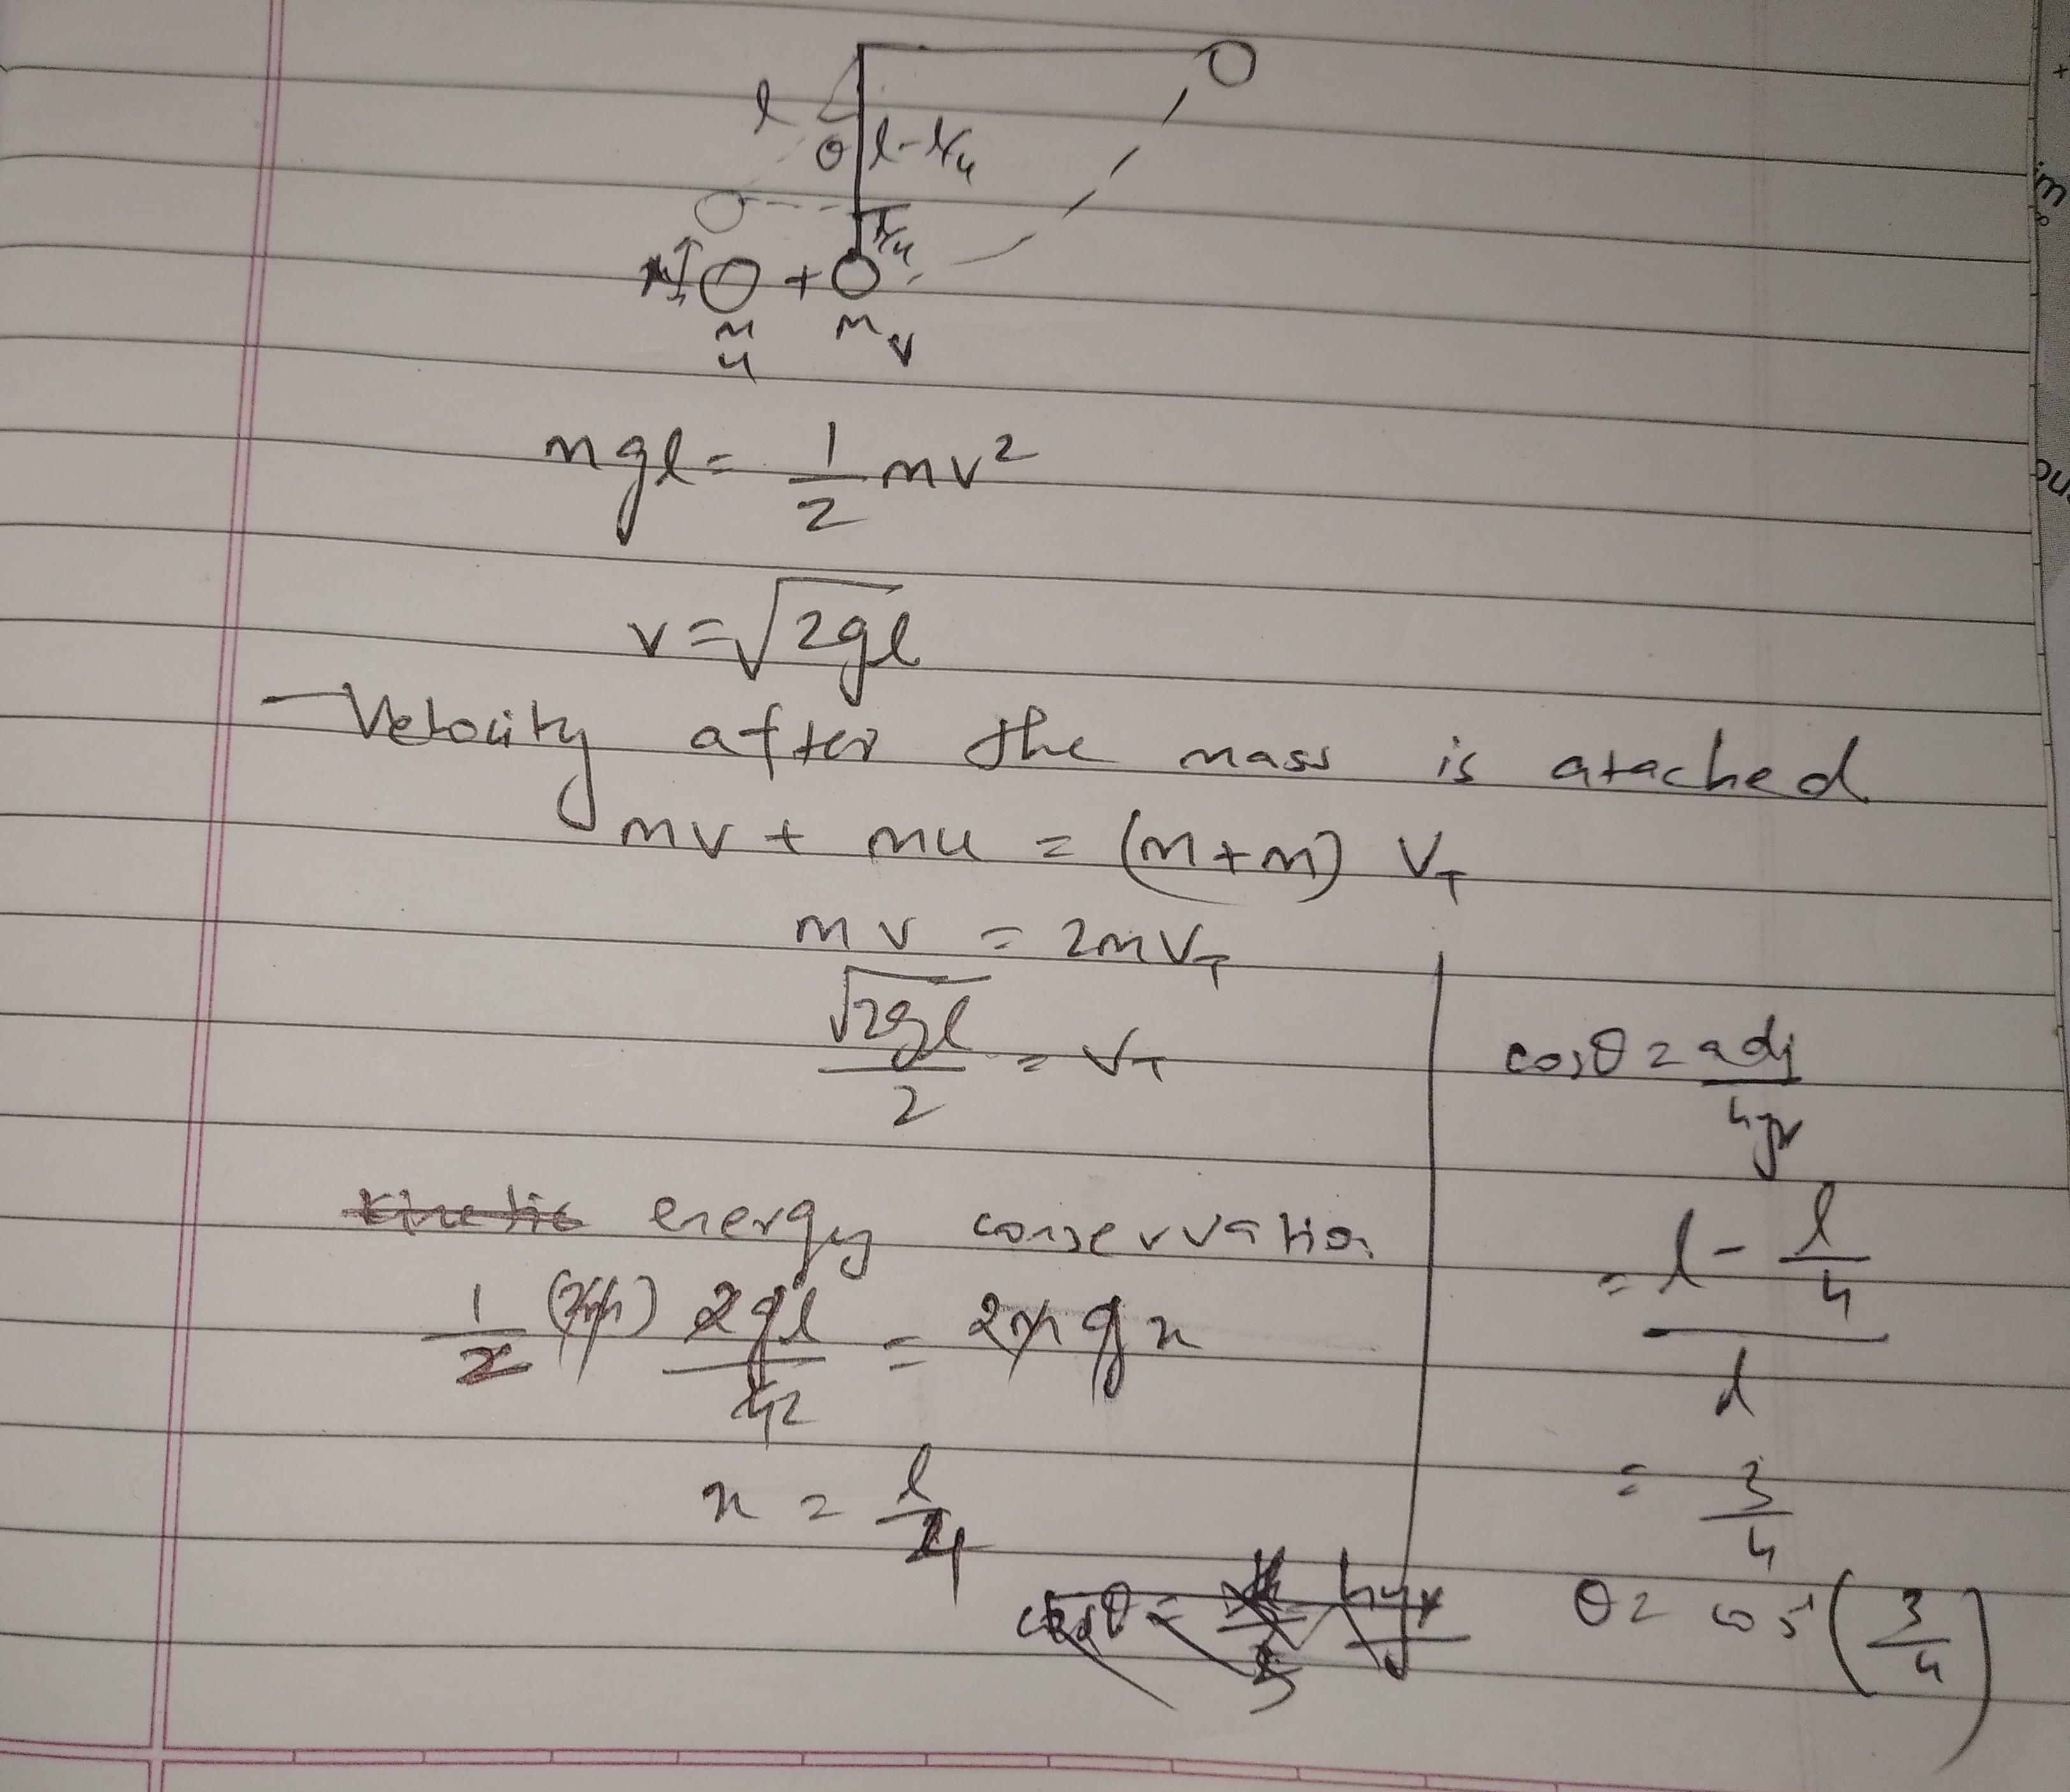 l
θ l-l/4
l/4
x + 
m m
u v
mgl = 1/2 mv²
v = √2gl
- Velocity after the mass is atached
mv + mu = (m+m) V_T
mv = 2mV_T
√2gl/2 = V_T
kinetic energy conservation
1/2 (2m) 2gl/4 = 2mgx
x = l/4
cosθ = adj/hyp
= l - l/4 / l
= 3/4
θ = cos⁻¹(3/4)